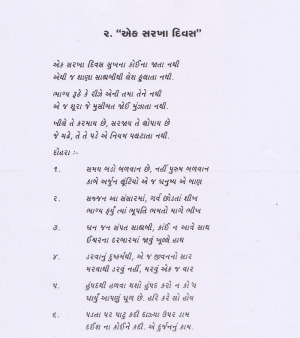 ૨. “એક સરખા દિવસ”
એક સરખા દિવસ સુખના કોઈના જાતા નથી
એથી જ શાણા સાહ્યબીથી લેશ ફુલાતા નથી.
ભાગ્ય રૂઠે કે રીઝે એની તમા તેને નથી
એ જ શૂરા જે મુસીબત જોઈ મુંઝાતા નથી.
ખીલે તે કરમાય છે, સરજાય તે લોપાય છે
જે ચઢે, તે તે પડે એ નિયમ પલટાતા નથી.
દોહરા :-
૧. સમય બડો બળવાન છે, નહીં પુરુષ બળવાન
કાબે અર્જુન લૂંટિયો એ જ ધનુષ્ય એ બાણ
૨. સજ્જન આ સંસારમાં, ગર્વ છોડતાં શીખ
ભાગ્ય ફર્યું ત્યાં ભૂપતિ ભમતો માગે ભીખ
૩. ધન જન સંપત સાહ્યબી, કાંઈ ન આવે સાથ
ઈશ્વરના દરબારમાં જાવું ખુલ્લે હાથ
૪. ડરવાનું દુષ્કર્મથી, એ જ જીવનનો સાર
મરવાથી ડરવું નહીં, મરવું એક જ વાર
૫. હુંપદથી હળવા થશો હુંપદ કરો ન કો'ય
ધાર્યું આપણું ધૂળ છે. હરિ કરે સો હોય
૬. પડતા પર પાટુ કદી દાઝ્યા ઉપર ડામ
દઈશ ના કોઈને કદી. એ દુર્જનનું કામ.